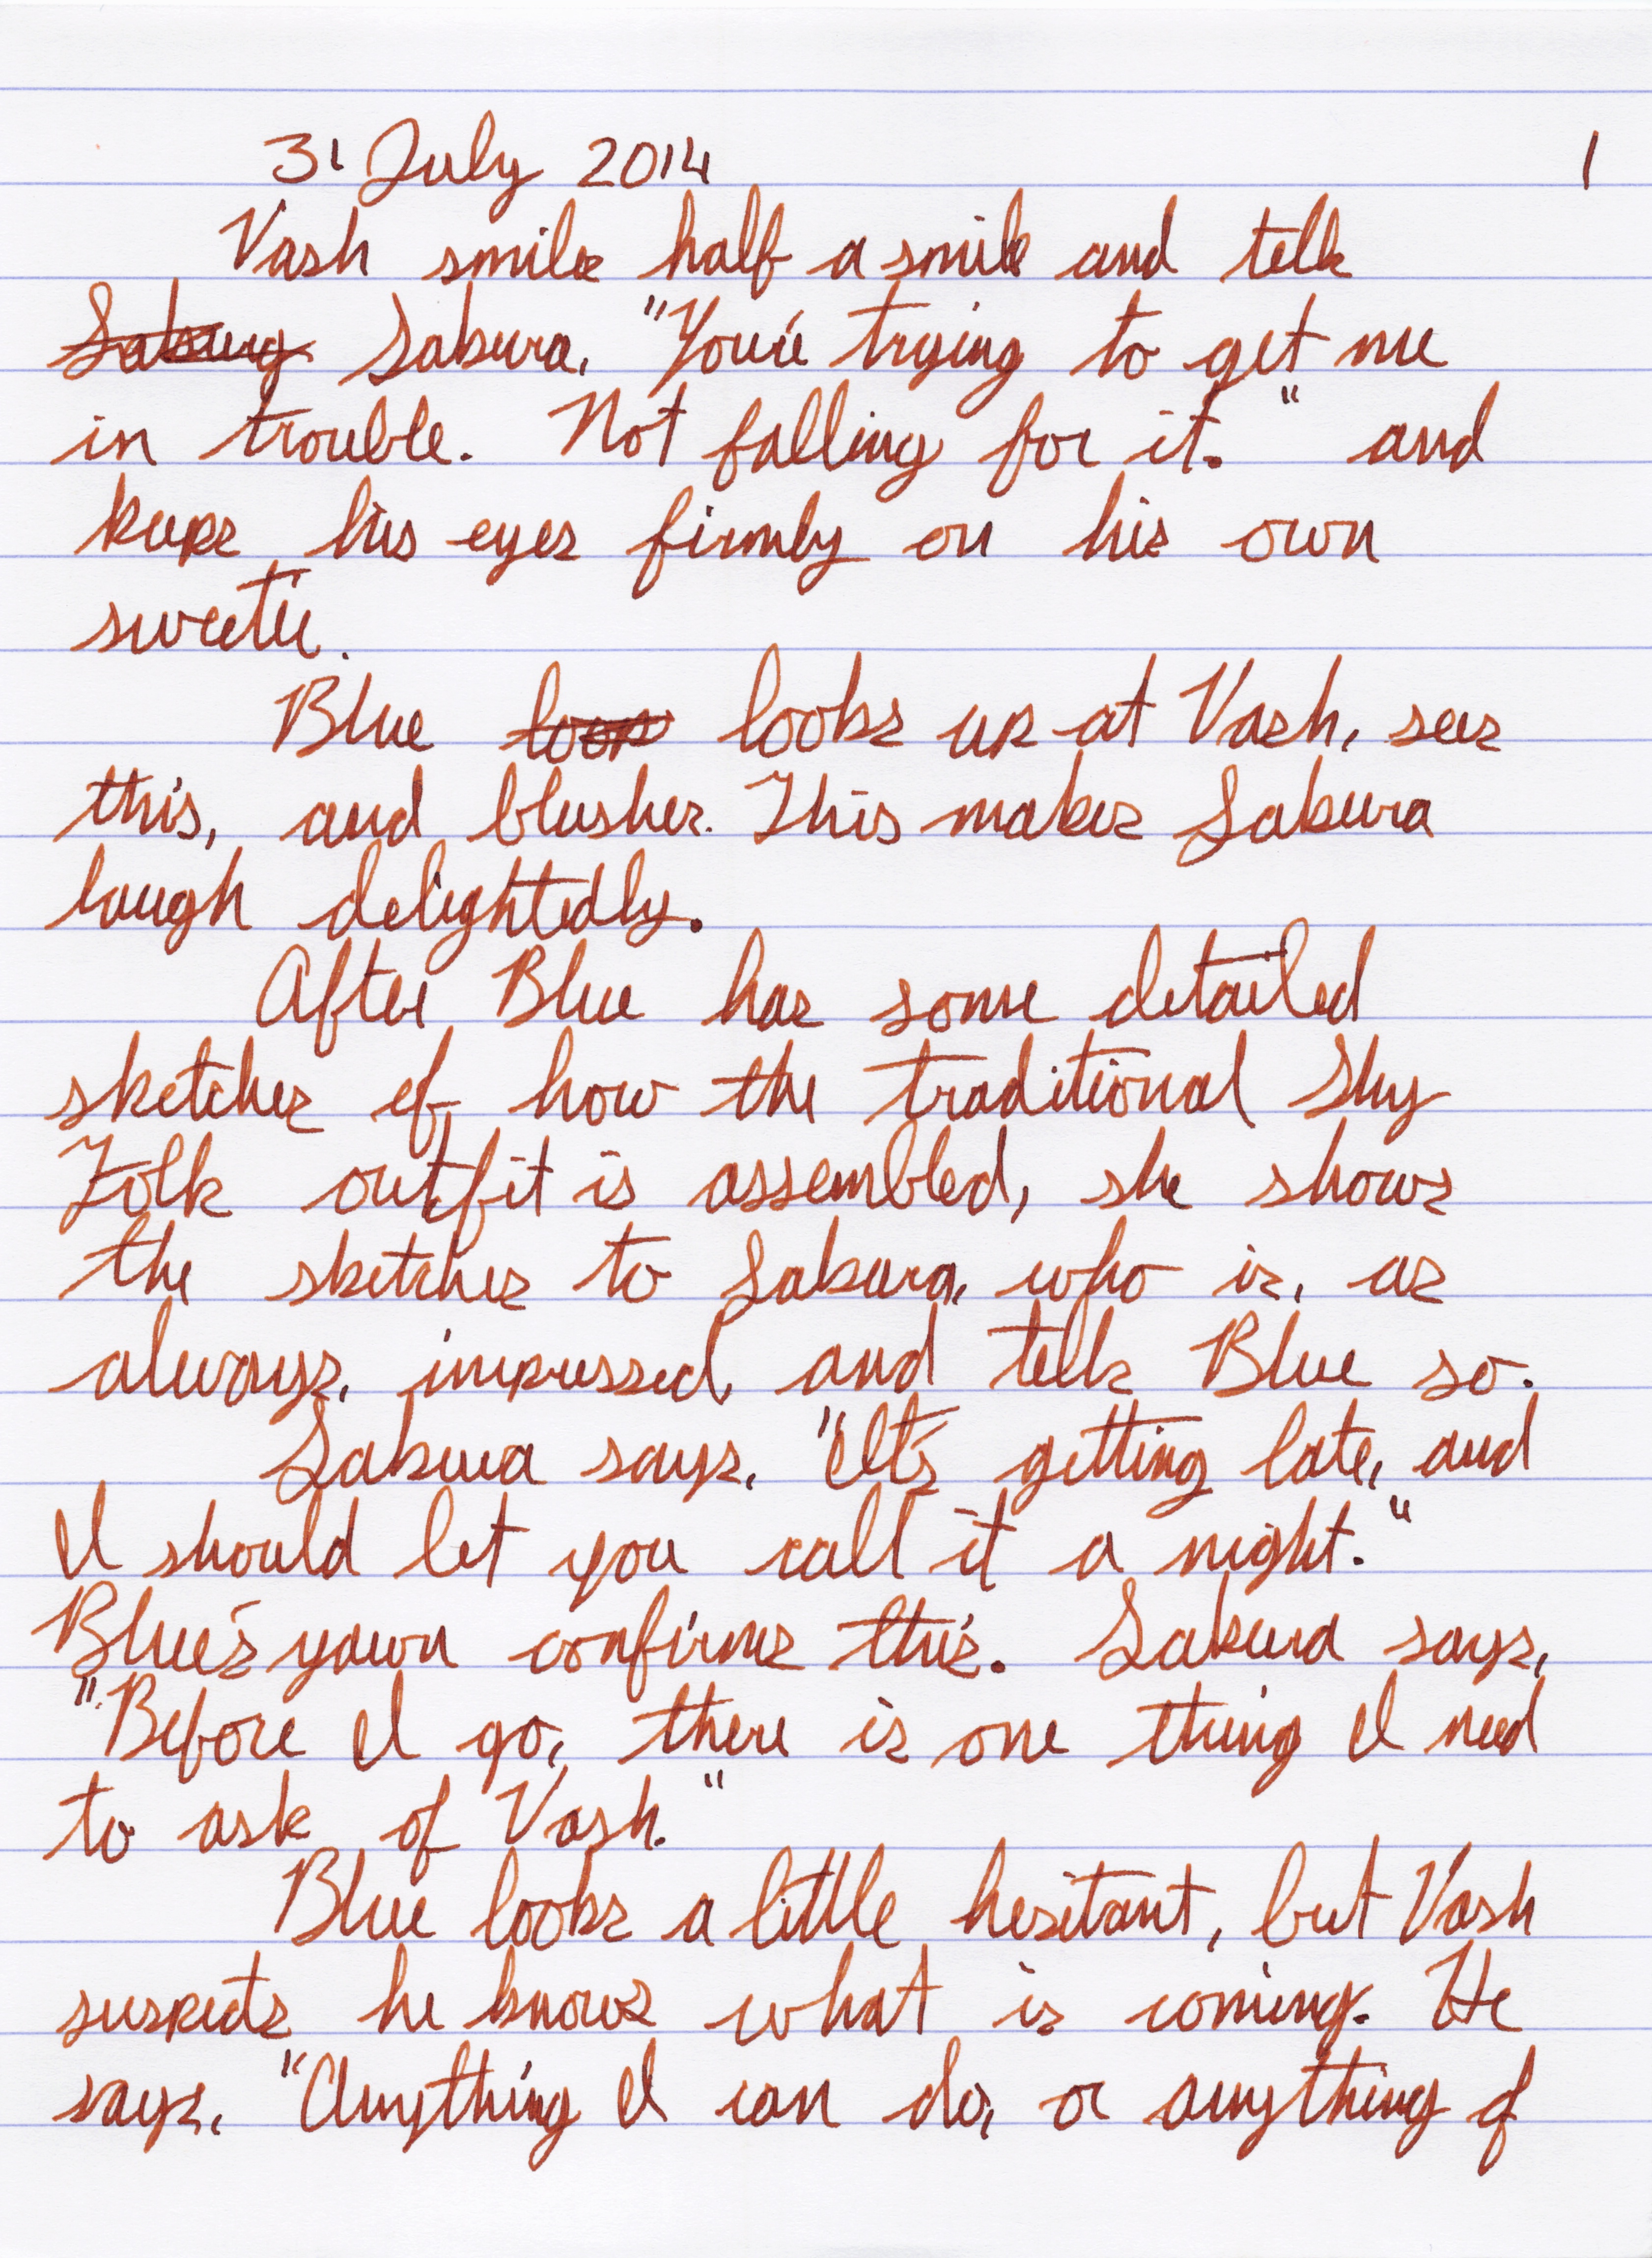 31 July 2014 1
Vash smiles half a smile and tells
Sakura Sakura, "You're trying to get me
in trouble. Not falling for it." and
keeps his eyes firmly on his own
sweetie.
Blue look looks up at Vash, sees
this, and blushes. This makes Sakura
laugh delightedly.
After Blue has some detailed
sketches of how the traditional Sky
Folk outfit is assembled, she shows
the sketches to Sakura, who is, as
always, impressed, and tells Blue so.
Sakura says, "It's getting late, and
I should let you call it a night."
Blue's yawn confirms this. Sakura says,
"Before I go, there is one thing I need
to ask of Vash."
Blue looks a little hesitant, but Vash
suspects he knows what is coming. He
says, "Anything I can do, or anything of